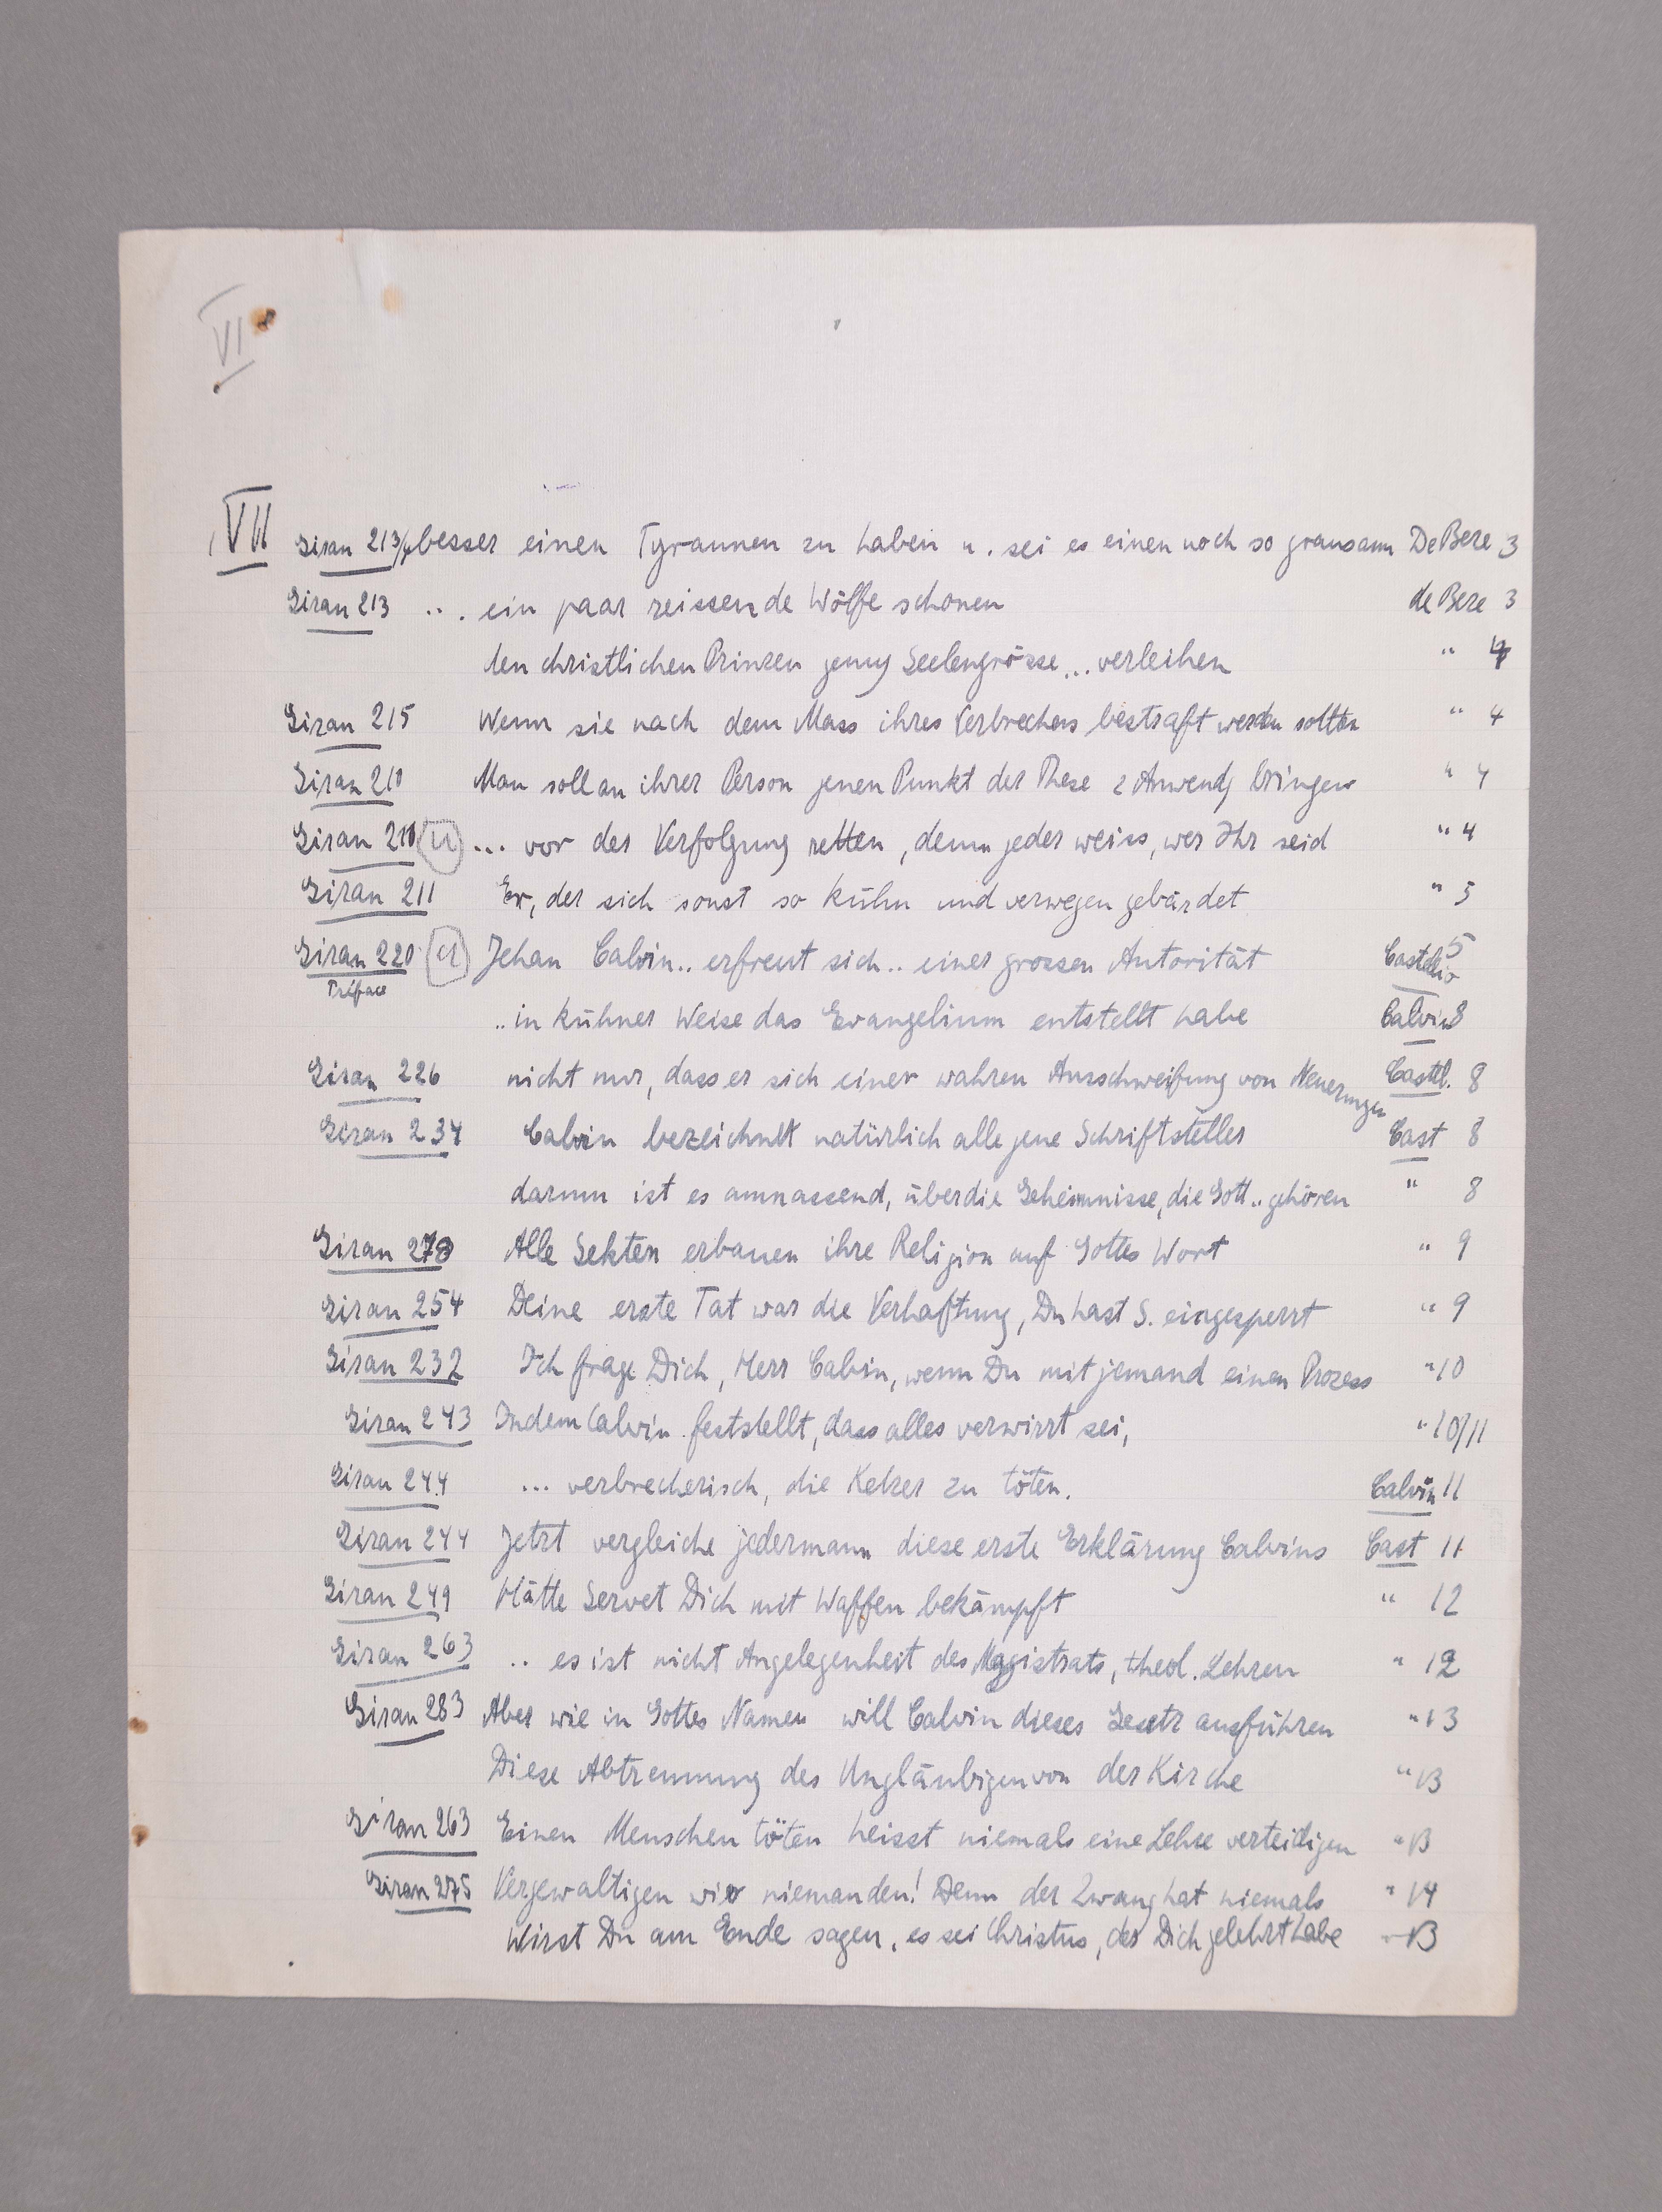 VI
VII Giran 213/4 besser einen Tyrannen zu haben u. sei es einen noch so grausam De Beze 3
Giran 213 ... ein paar reissende Wölfe schonen de Beze 3
den christlichen Prinzen genug Seelengrösse... verleihen " 4
Giran 215 Wenn sie nach dem Mass ihres Verbrechens bestraft werden sollten " 4
Giran 210 Man soll an ihrer Person jenen Punkt der These z Anwendg bringen " 4
Giran 210 ... vor der Verfolgung retten, denn jeder weiss, wer Ihr seid " 4
Giran 211 Er, der sich sonst so kühn und verwegen gebärdet " 5
Giran 220 Jehan Calvin.. erfreut sich.. einer grossen Autorität Castellio 5
Préface
.. in kühner Weise das Evangelium entstellt habe Calvin 8
Giran 226 nicht nur, dass er sich einer wahren Ausschweifung von Neuerungen Castell. 8
Giran 234 Calvin bezeichnet natürlich alle jene Schriftsteller Cast 8
darum ist es anmassend, über die Geheimnisse, die Gott .. gehören " 8
Giran 278 Alle Sekten erbauen ihre Religion auf Gottes Wort " 9
Giran 254 Deine erste Tat war die Verhaftung, Du hast S. eingesperrt " 9
Giran 232 Ich frage Dich, Herr Calvin, wenn Du mit jemand einen Prozess " 10
Giran 243 Indem Calvin feststellt, dass alles verwirrt sei, " 10/11
Giran 244 ... verbrecherisch, die Ketzer zu töten. Calvin 11
Giran 244 Jetzt vergleiche jedermann diese erste Erklärung Calvins Cast 11
Giran 249 Hätte Servet Dich mit Waffen bekämpft " 12
Giran 263 .. es ist nicht Angelegenheit des Magistrats, theol. Lehren " 12
Giran 283 Aber wie in Gottes Namen will Calvin dieses Gesetz ausführen " 13
Diese Abtrennung des Ungläubigen von der Kirche " 13
Giran 263 Einen Menschen töten heisst niemals eine Lehre verteidigen " 13
Giran 275 Vergewaltigen wir niemanden! Denn der Zwang hat niemals " 14
Wirst Du am Ende sagen, es sei Christus, der Dich gelehrt habe " 13